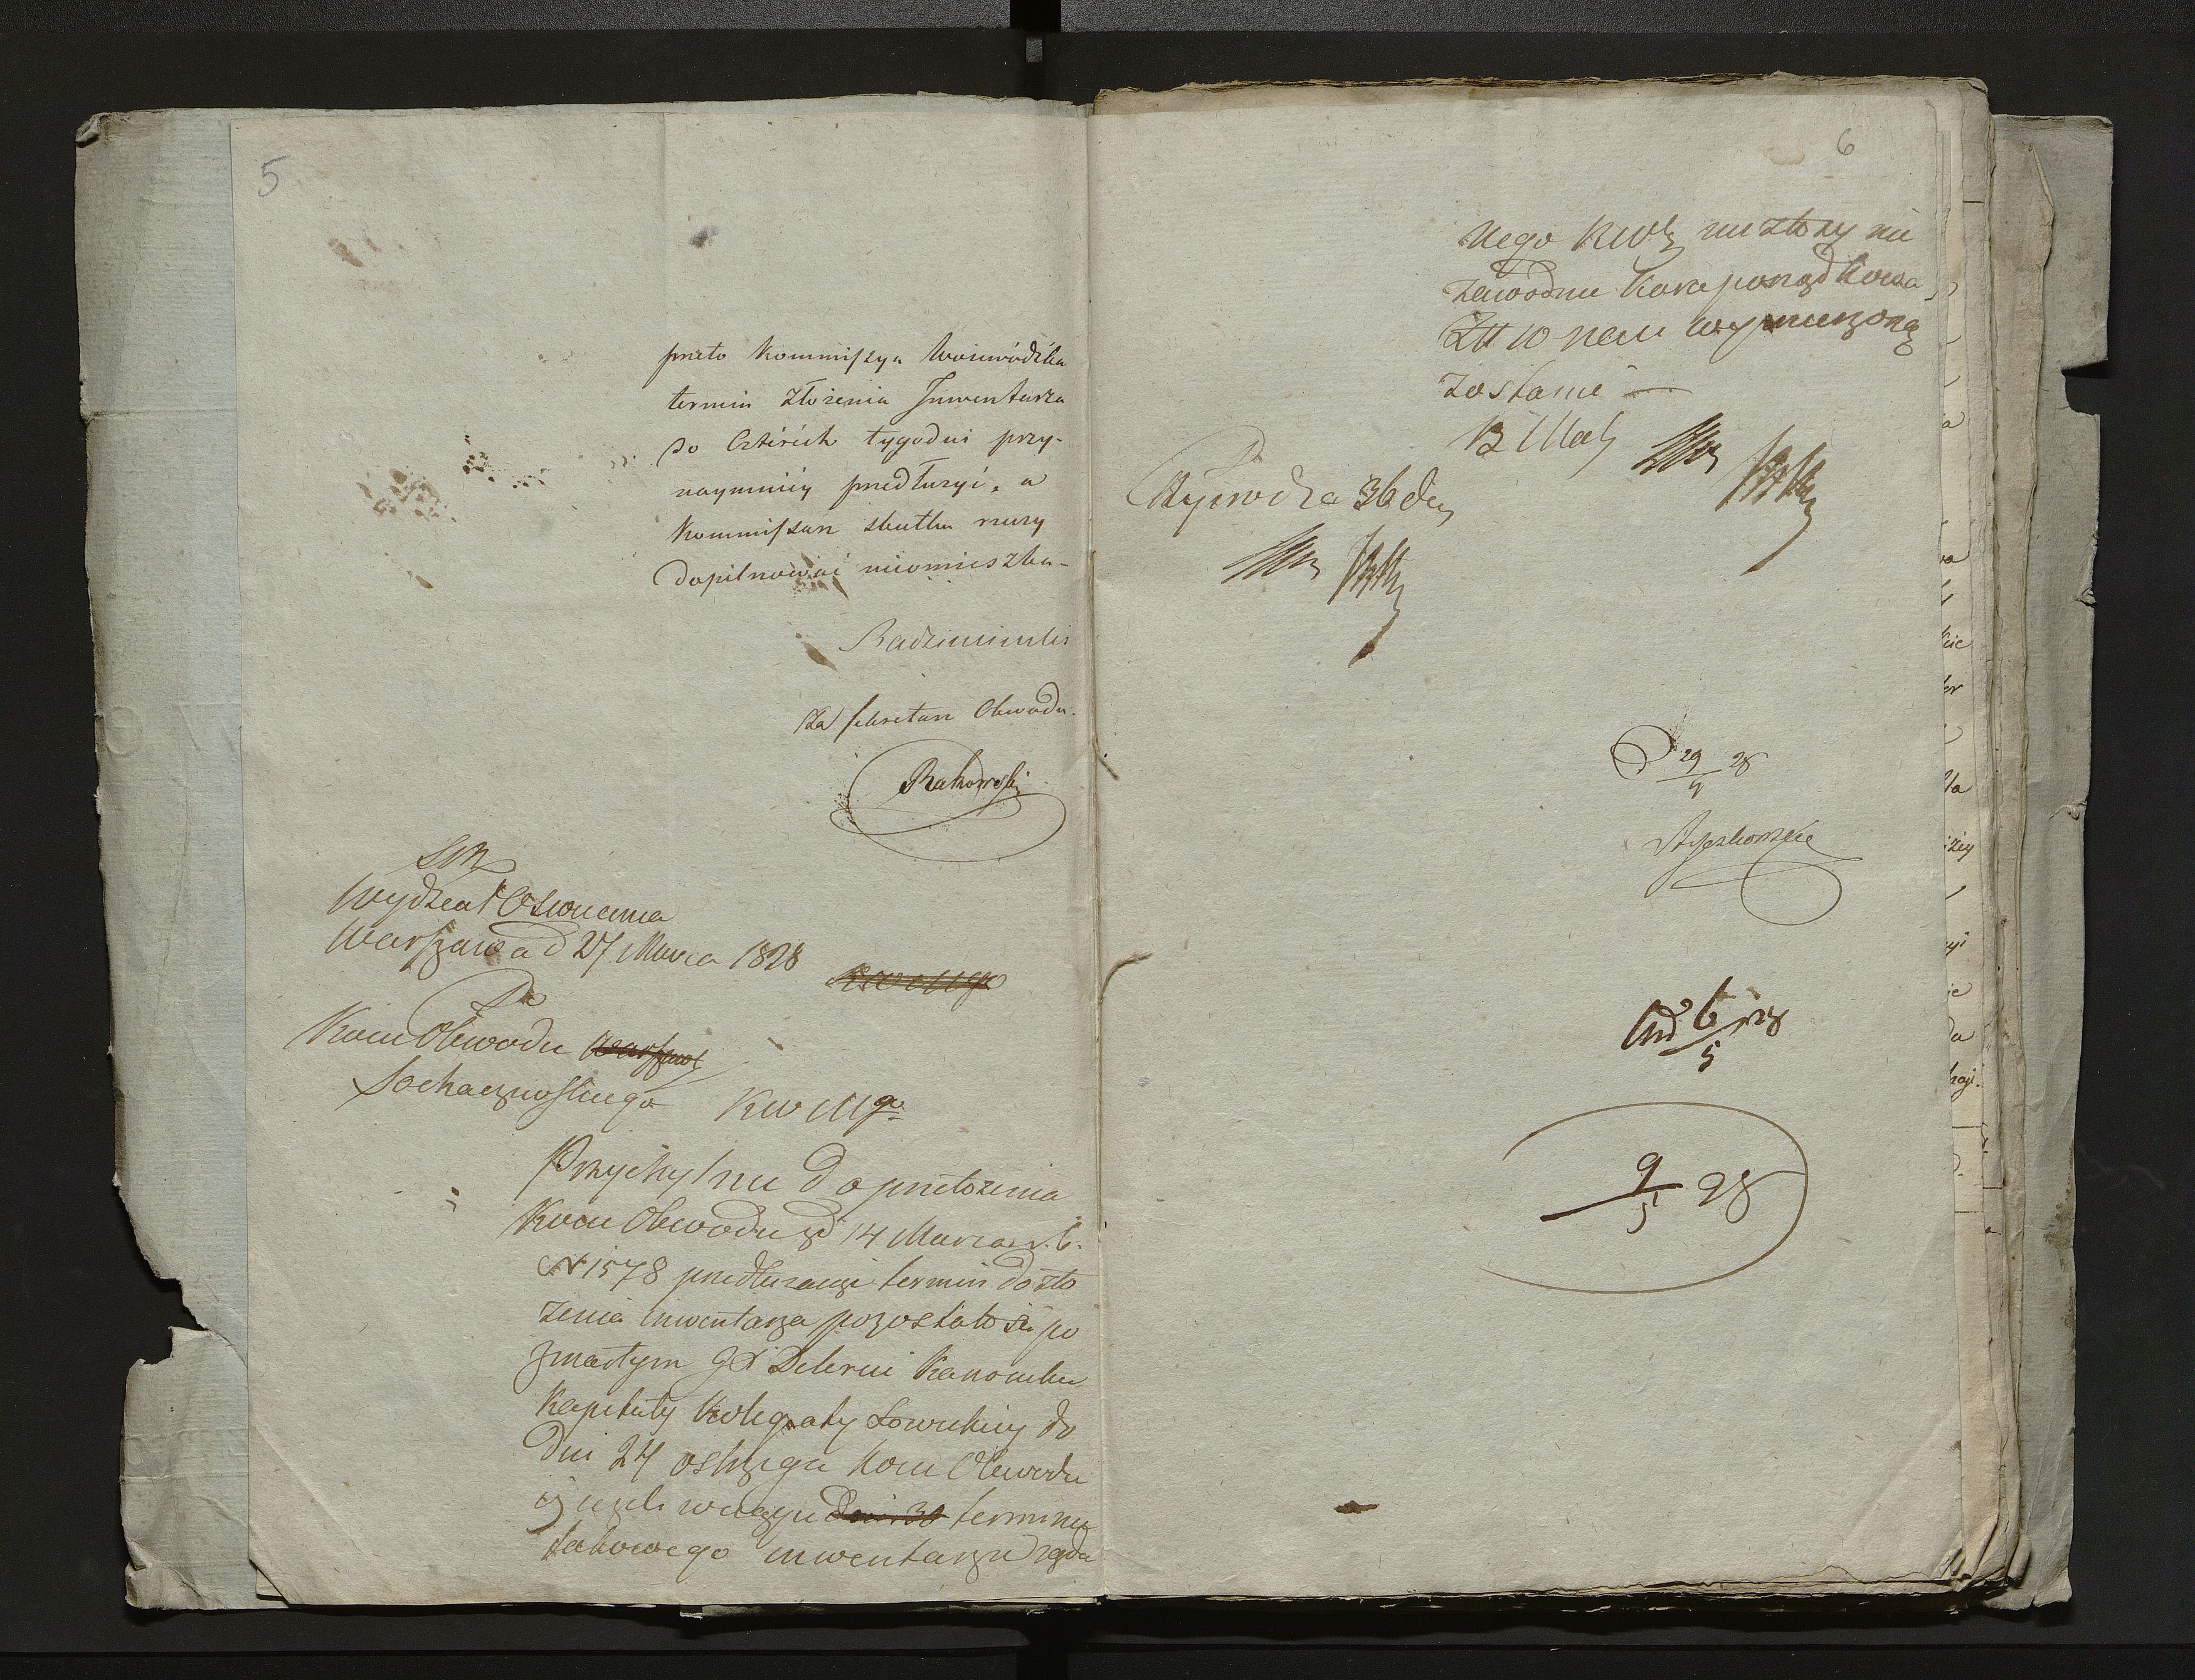 5
przeto Kommissya Woiewódzka
termin złożenia Inwentarza
do Cztérich tygodni przy-
naymniéy przedłużyć, a
Kommissarz skutku raczy
dopilnować nieomieszka-
Radzimiński
Za Sekretarz Obwodu.
Rakowski
Wydział Oświecenia
Warszawa d 27 Marca 1828
Do
Kom Obwodu Warszaw
Sochaczewskiego KWMgo
Przychylnie do przełożenia
Kom Obwodu z d 14 Marca r. b.
N 1578 przedłużając termin do zło
żenia inwentarza pozostałości po
zmarłym JX Dekercie Kanoniku
Kapituły Kolegiaty Łowickiey do
dni 24 ostrzega Kom Obwodu
iż jeżeli w ciągu dni 30 terminu
takowego inwentarza żąda
6
nego KWM nie złoży nie
zawodnie kara porządkowa
Zł 10 na wymierzoną
zostanie
29/4 28
6/5 28
9/5 28